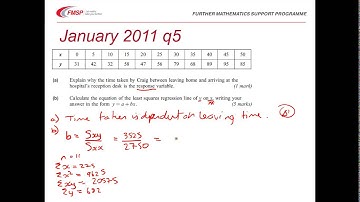 FMSP
FURTHER MATHEMATICS SUPPORT PROGRAMME
January 2011 q5
x 0 5 10 15 20 25 30 35 40 45 50
y 31 42 32 58 47 56 79 68 89 95 85
(a) Explain why the time taken by Craig between leaving home and arriving at the
hospital's reception desk is the response variable. (1 mark)
(b) Calculate the equation of the least squares regression line of y on x, writing your
answer in the form y = a + bx. (5 marks)
a) Time taken is dependent on leaving time.
b) b = Sxy / Sxx = 3525 / 2750 =
n = 11
Σx = 275
Σx² = 9625
Σxy = 20575
Σy = 682